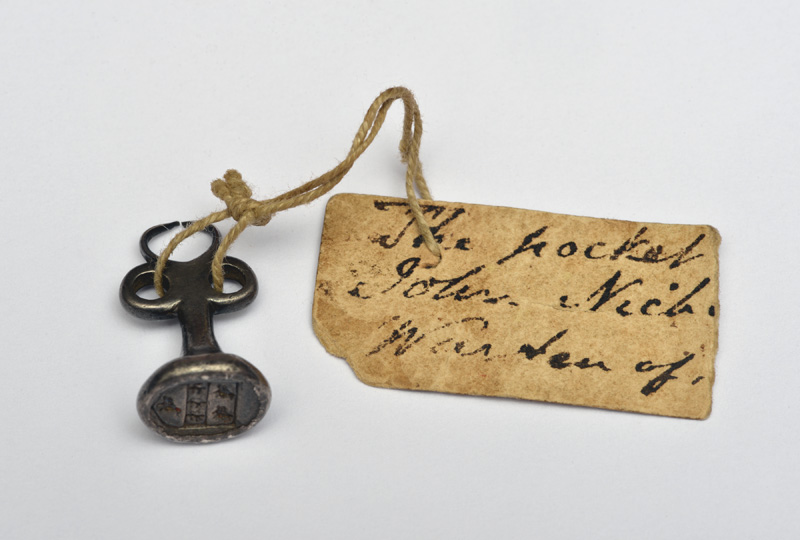 The pocket
John Nich
Warden of